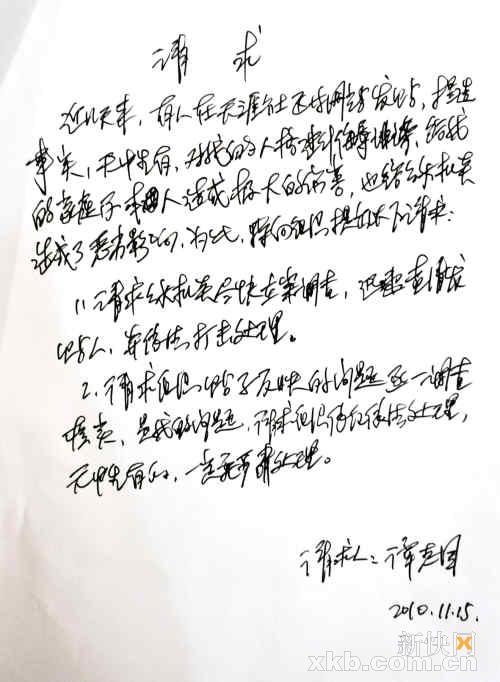 请求
近几天来，有人在天涯社区等网站发帖，捏造
事实，无中生有，对我的人格进行侮辱诽谤，给我
的家庭和本人造成极大的伤害，也给公安机关
造成了恶劣影响，为此，特向组织提如下请求：
1、请求公安机关尽快立案调查，迅速查清发
帖人，并依法打击处理。
2、请求组织对帖子反映的问题逐一调查
核实，是我的问题，请求组织依纪依法处理，
无中生有的，一定要严肃处理。
请求人：谭志国
2010.11.15.
新快网
xkb.com.cn